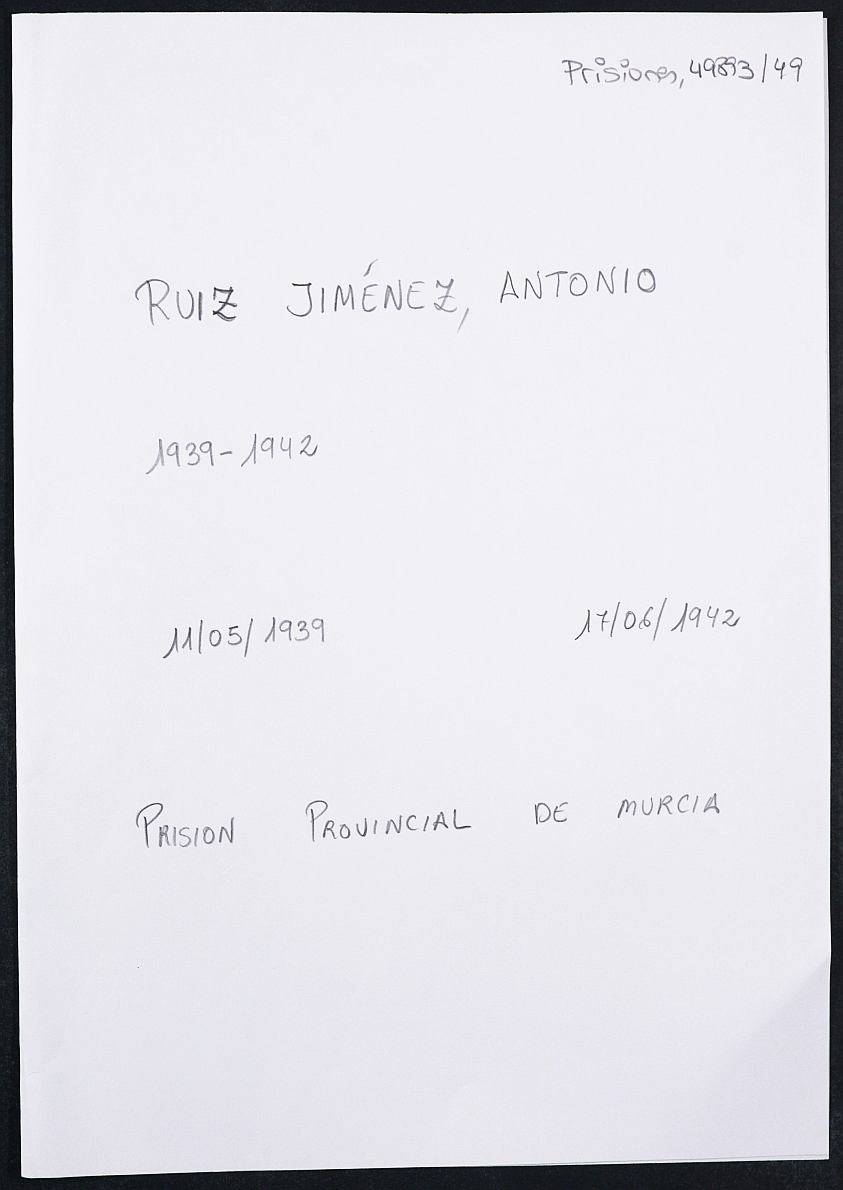 Prisiones, 49893/49
RUIZ JIMÉNEZ, ANTONIO
1939-1942
11/05/1939 17/06/1942
PRISION PROVINCIAL DE MURCIA